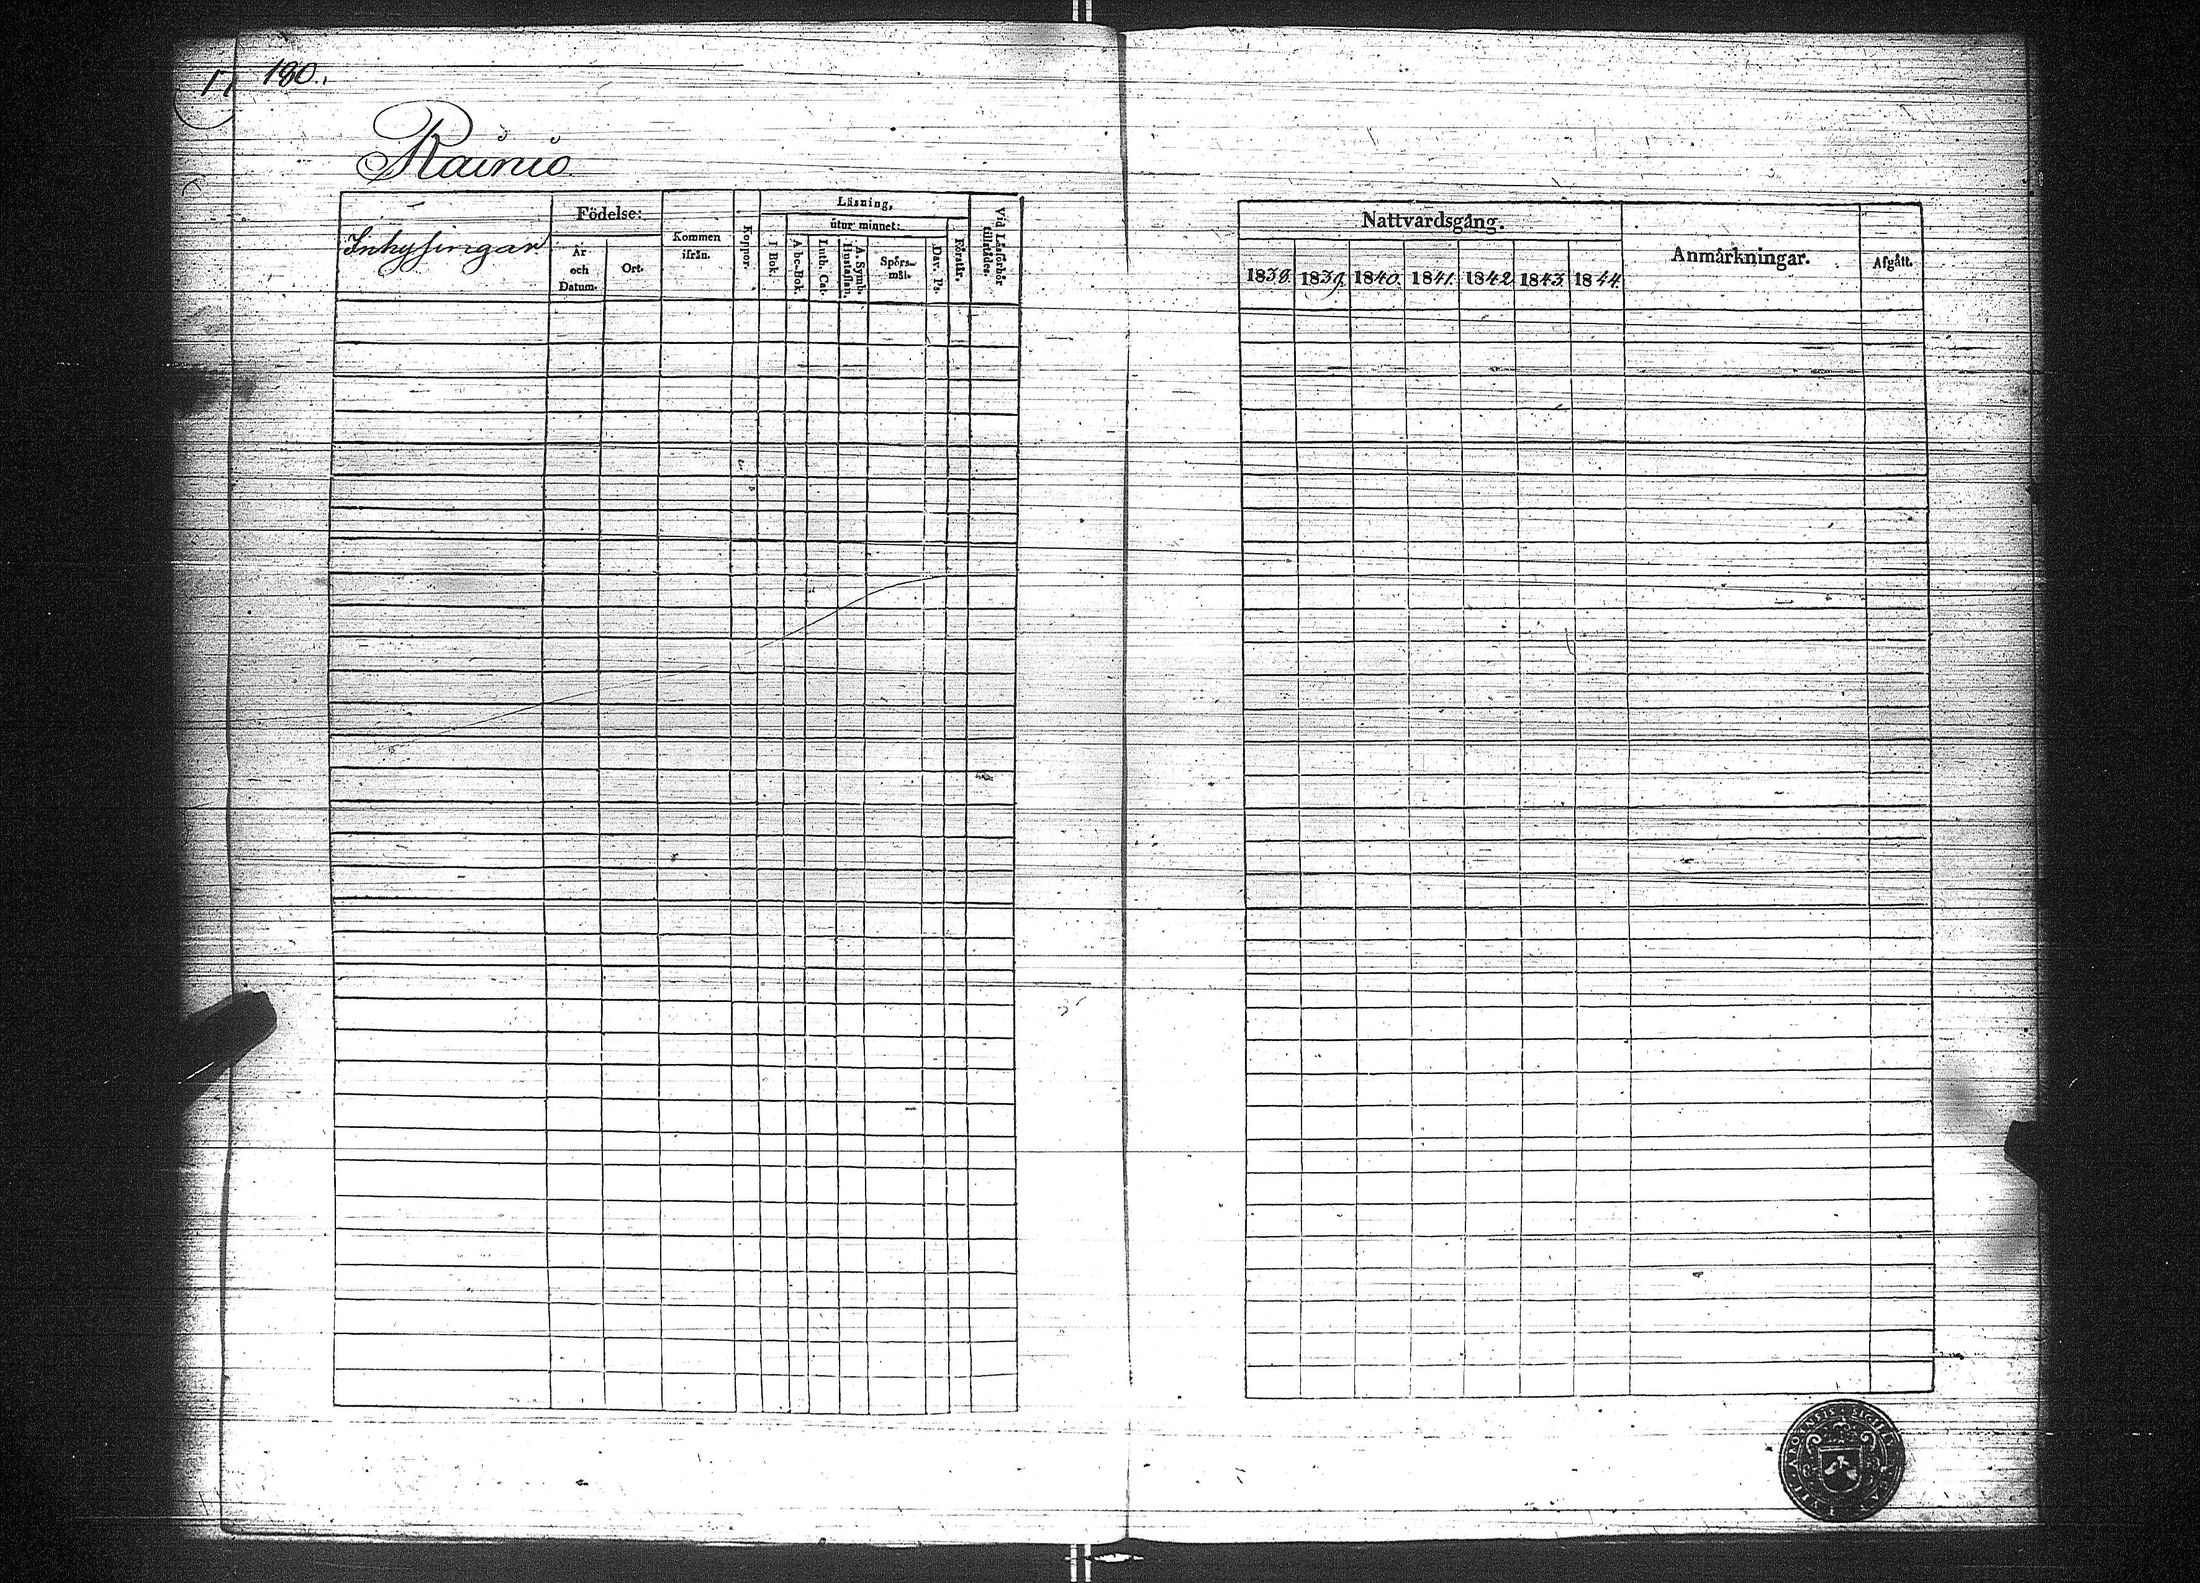 180.
Rainio
Inhysingar
Födelse:
År
och
Datum.
Ort.
Kommen
ifrån.
Koppor.
Läsning,
I Bok.
utur minnet:
Abc-Bok.
Luth. Cat.
A. Symb.
Hustaflan.
Spörs-
mål.
Dav. Ps.
Förstår.
Vid Läsförhör
tillstädes.
Nattvardsgång.
1838. 1839. 1840. 1841. 1842. 1843. 1844.
Anmärkningar.
Afgått.